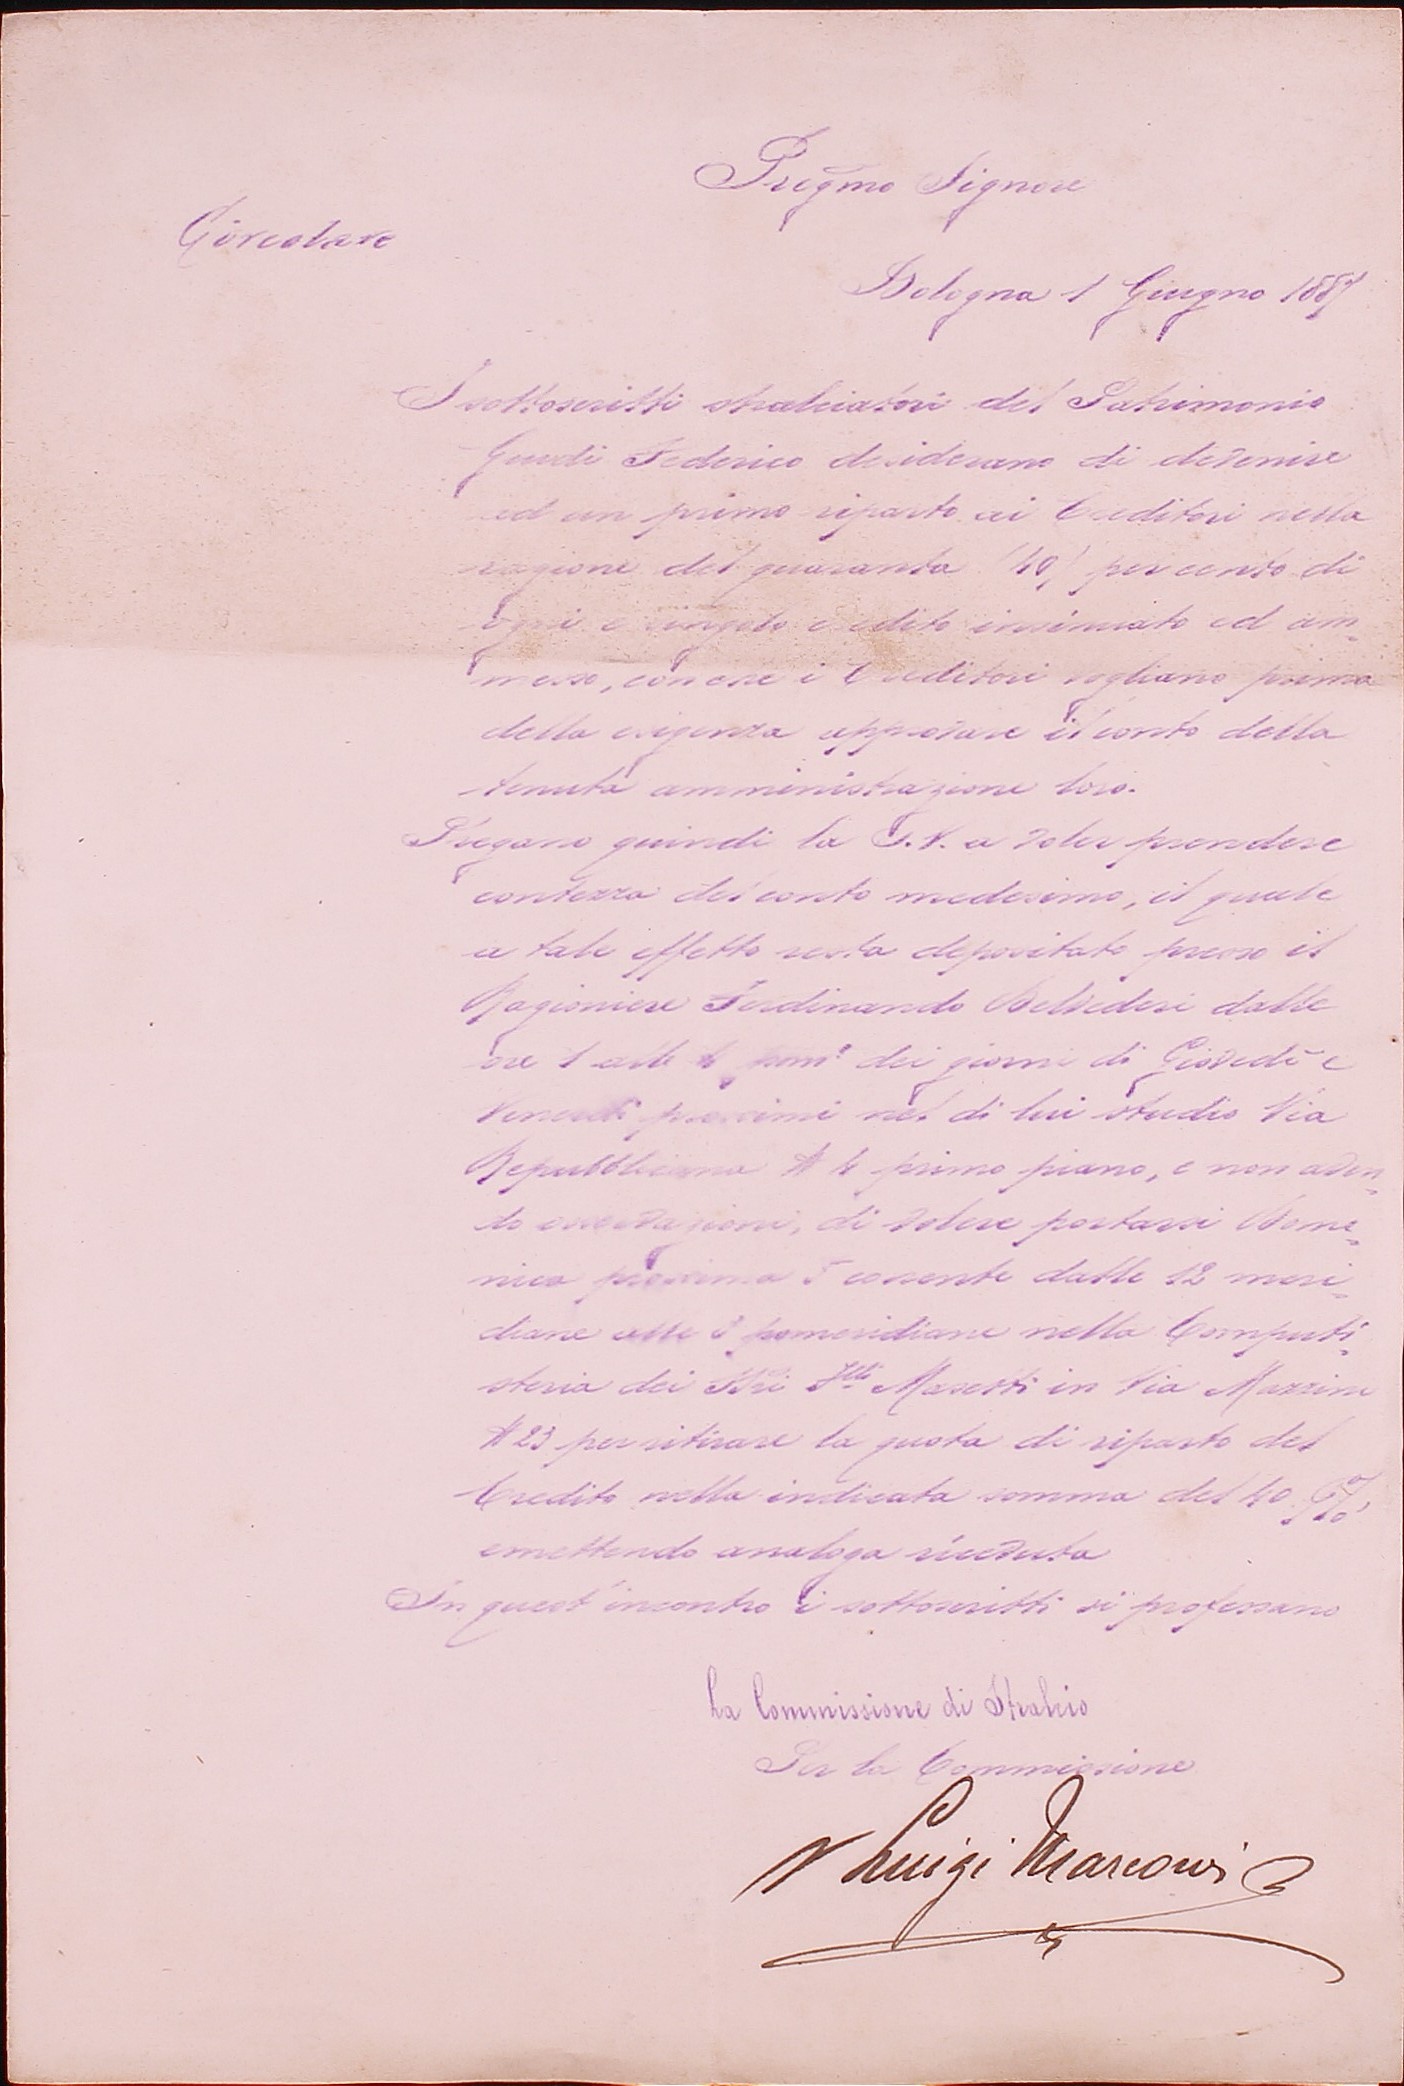 Pregmo Signore
Circolare
Bologna 1 Giugno 1887
I sottoscritti stralciatori del Patrimonio
Guidi Federico desiderano di devenire
ad un primo riparto ai Creditori nella
ragione del quaranta (40) per cento di
ogni e singolo credito insinuato ed am=
messo, con che i Creditori vogliano prima
della esigenza approvare il conto della
tenuta amministrazione loro.
Pregano quindi la S.V. a voler prendere
contezza del conto medesimo, il quale
a tale effetto resta depositato presso il
Ragioniere Ferdinando Belvederi dalle
ore 1 alle 4 pom.e dei giorni di Giovedì e
Venerdì prossimi nel di lui studio Via
Repubblicana N 4 primo piano, e non aven=
do eccezioni, di volere portarsi Dome=
nica prossima 5 corrente dalle 12 meri=
diane alle 3 pomeridiane nella Computi=
steria dei Sri Flli Masetti in Via Mazzini
N 23 per ritirare la quota di riparto del
Credito nella indicata somma del 40 %
emettendo analoga ricevuta
In quest'incontro i sottoscritti si professano
La Commissione di Stralcio
Per la Commissione
Luigi Marconi